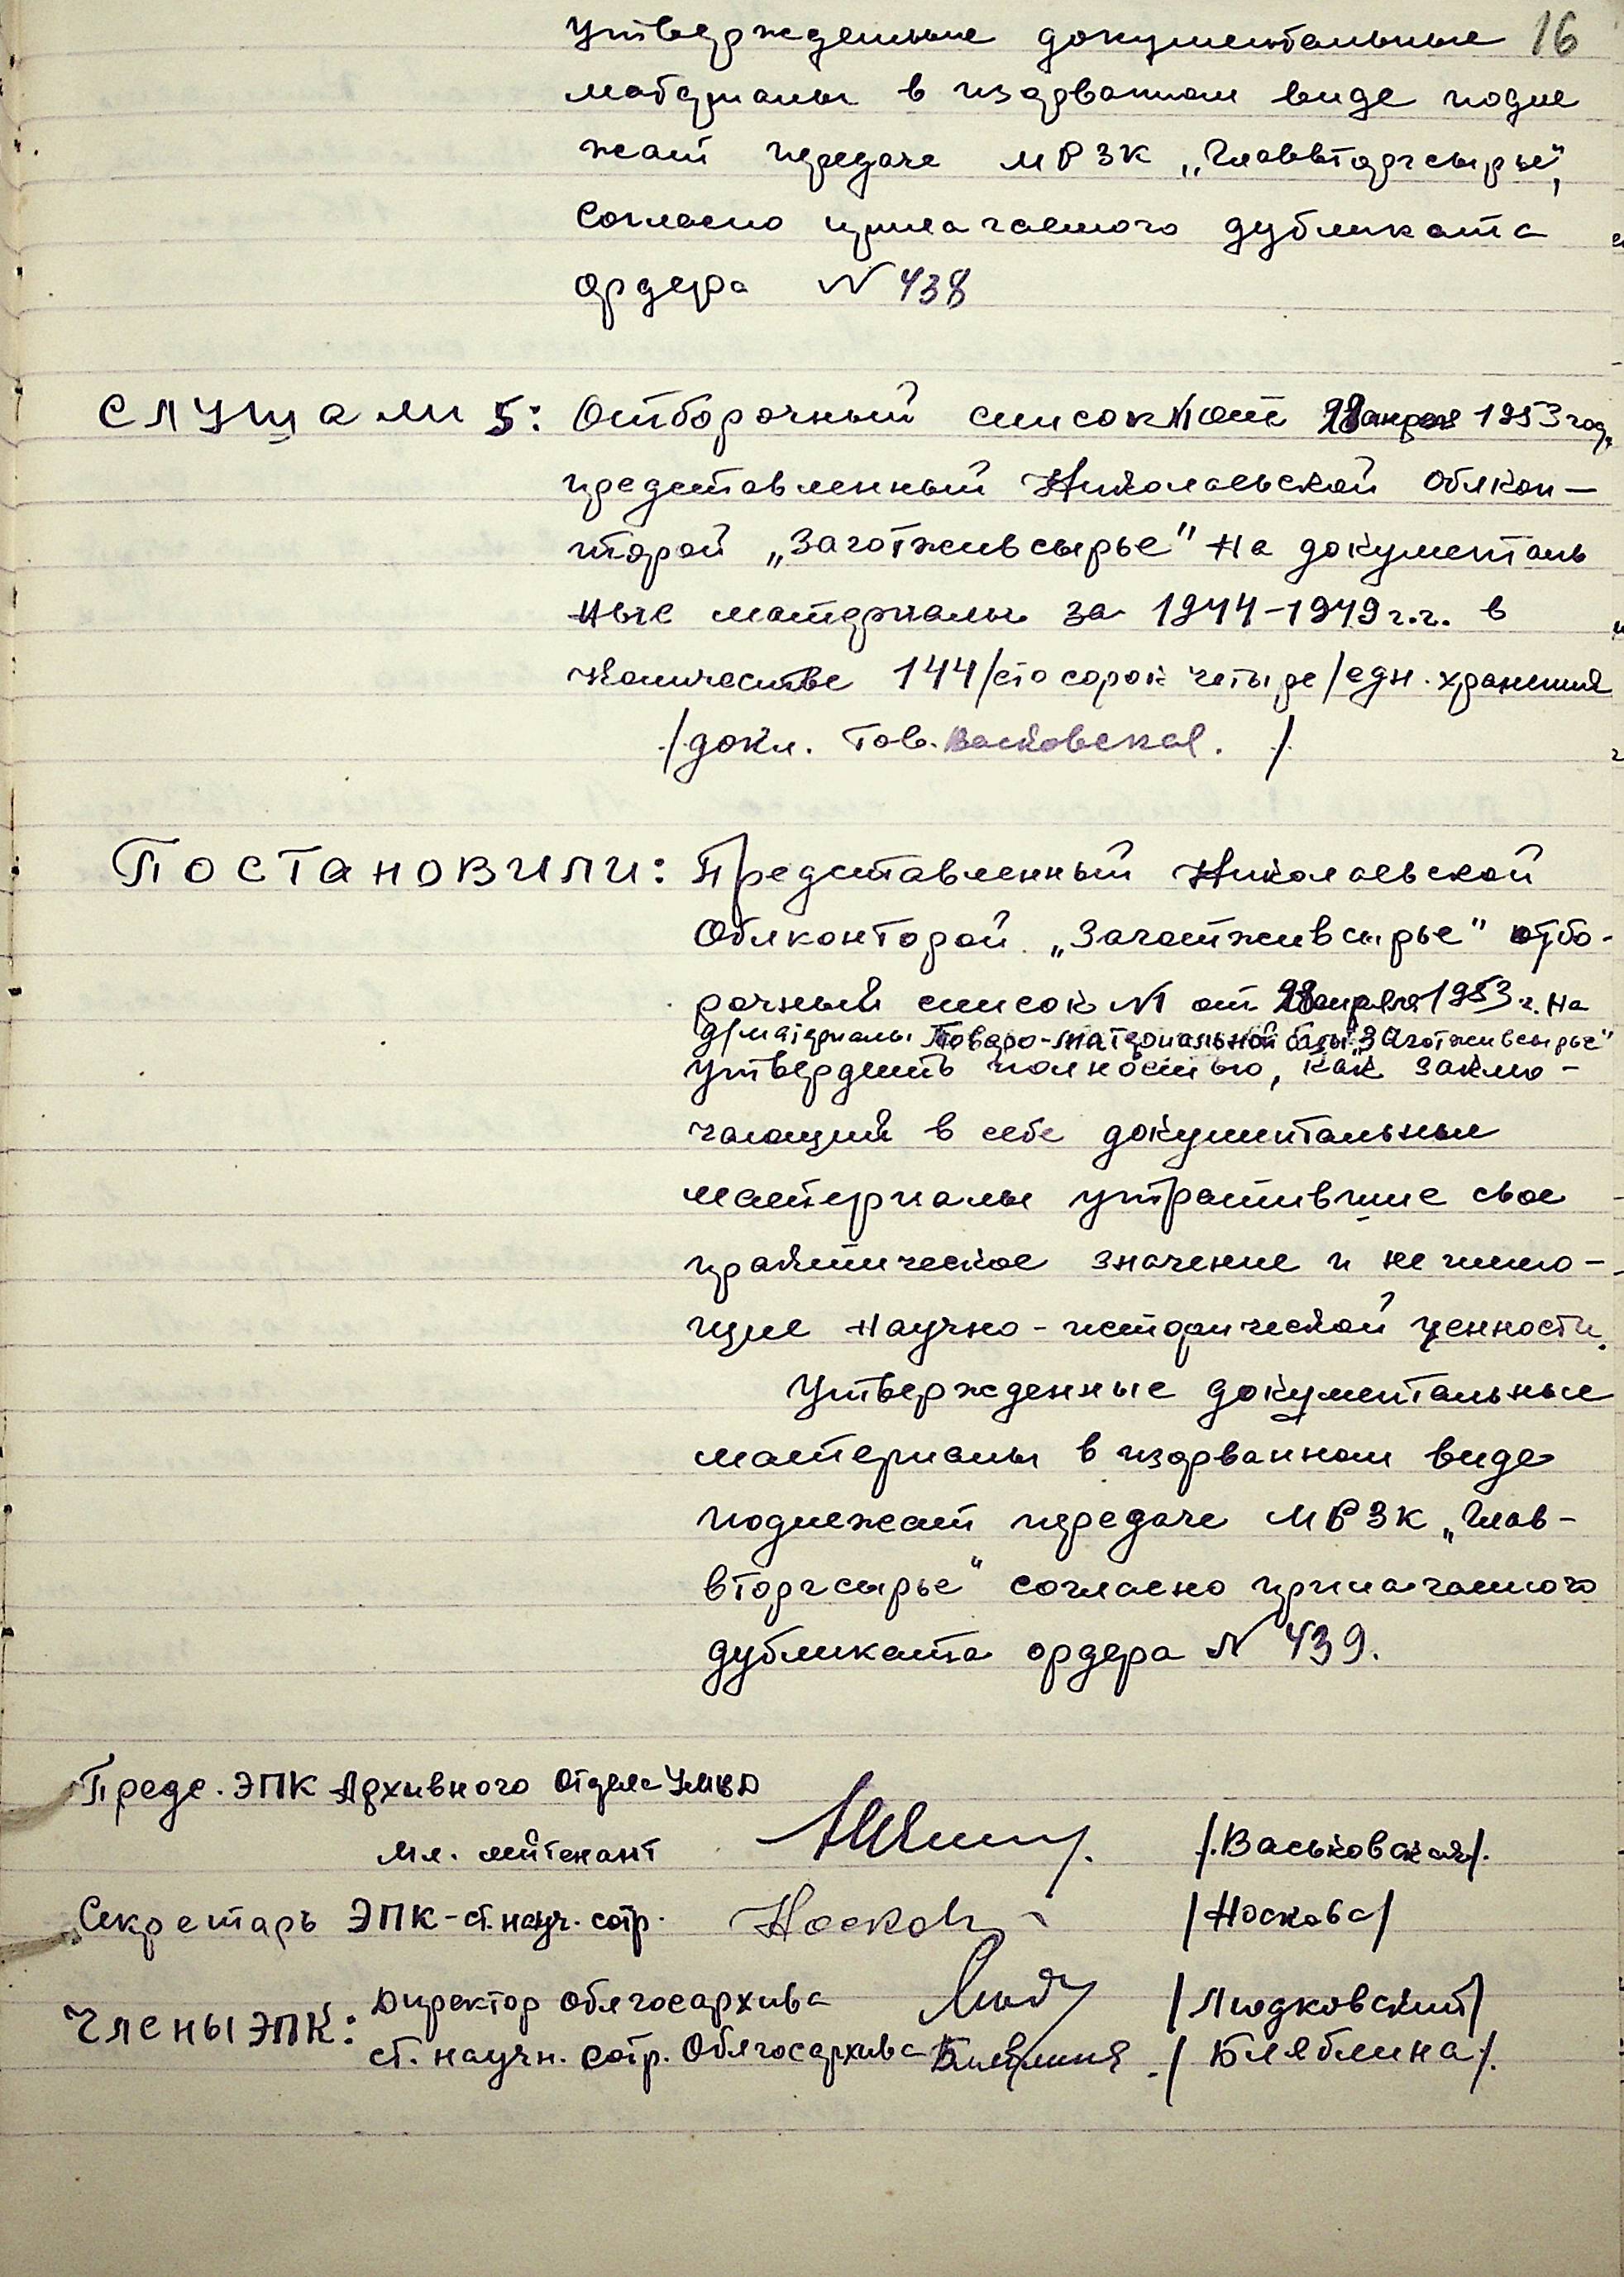 16
Утвержденные документальные
материалы в изорванном виде подле
жат передаче МРЗК „Главвторсырье",
согласно прилагаемого дубликата
ордера N 438
СЛУШАЛИ 5: Отборочный список N1 от апреля 1953 год,
представленный Николаевской Облкон-
торой „Заготживсырье" на документаль
ные материалы за 1944-1949 г.г. в
количестве 144/сто сорок четыре/едн. хранения
/докл. тов. Васьковская. /
ПОСТАНОВИЛИ: Представленный Николаевской
Облконторой „Заготживсырье" отбо-
рочный список N1 от апреля 1953 г. на
д/материалы Товаро-материальной базы „Заготживсырье"
утвердить полностью, как заклю-
чающий в себе документальные
материалы утратившие свое
практическое значение и не имею-
щие научно-исторической ценности.
Утвержденные документальные
материалы в изорванном виде
подлежат передаче МРЗК „Глав-
вторсырье" согласно прилагаемого
дубликата ордера N 439.
Предс. ЭПК Архивного Отдела УМВД
мл. лейтенант /.Васьковская/.
Секретарь ЭПК-ст. науч. сотр. Носков /Носкова/
Члены ЭПК: Директор облгосархива /Людковский/
ст. научн. сотр. Облгосархива Бляблина /Бляблина/.